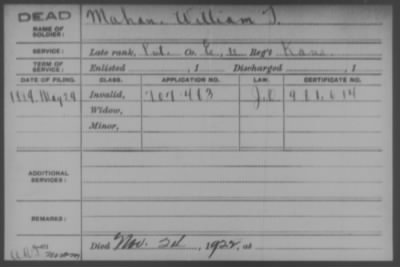 DEAD
NAME OF SOLDIER: Mahan, William T.
SERVICE: Late rank, Pvt. Co. E, 11 Reg't Kans
TERM OF SERVICE: Enlisted , 1 Discharged , 1
DATE OF FILING. CLASS. APPLICATION NO. LAW. CERTIFICATE NO.
May 29 Invalid, 707.483
Widow,
Minor,
ADDITIONAL SERVICES:
REMARKS:
Died Nov. 2d, 1922, at